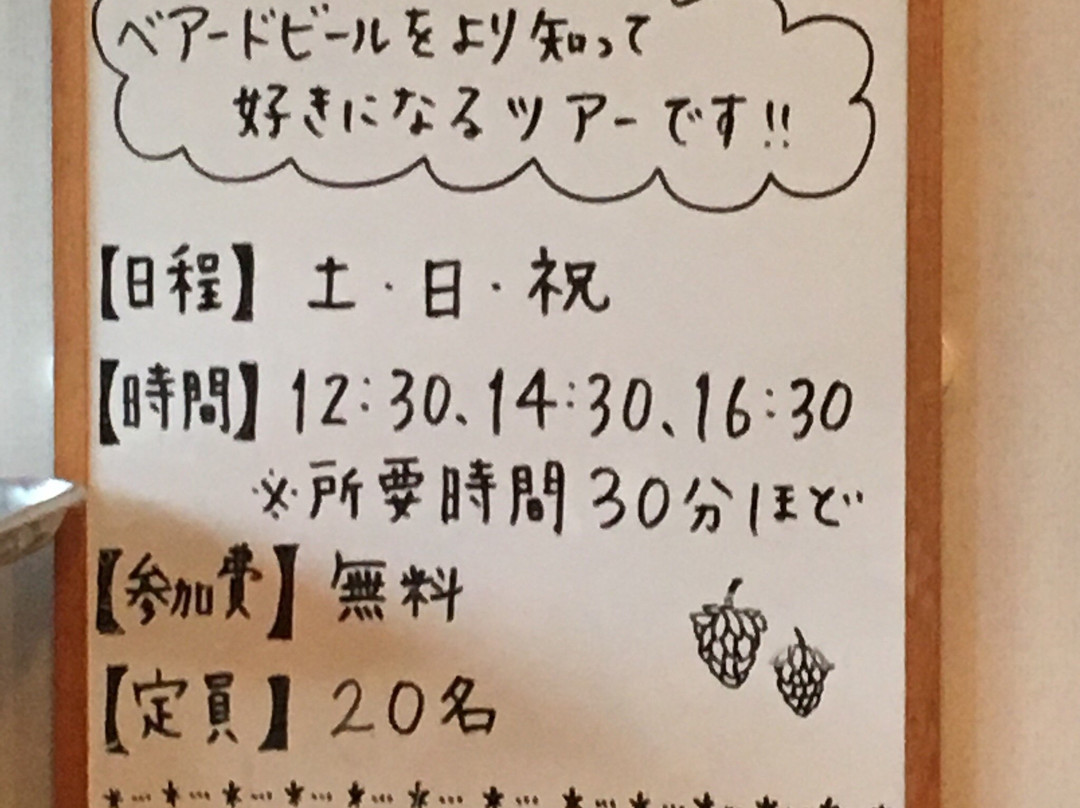 ベアードビールをより知って
好きになるツアーです!!
【日程】 土・日・祝
【時間】 12:30、14:30、16:30
※所要時間30分ほど
【参加費】 無料
【定員】 20名